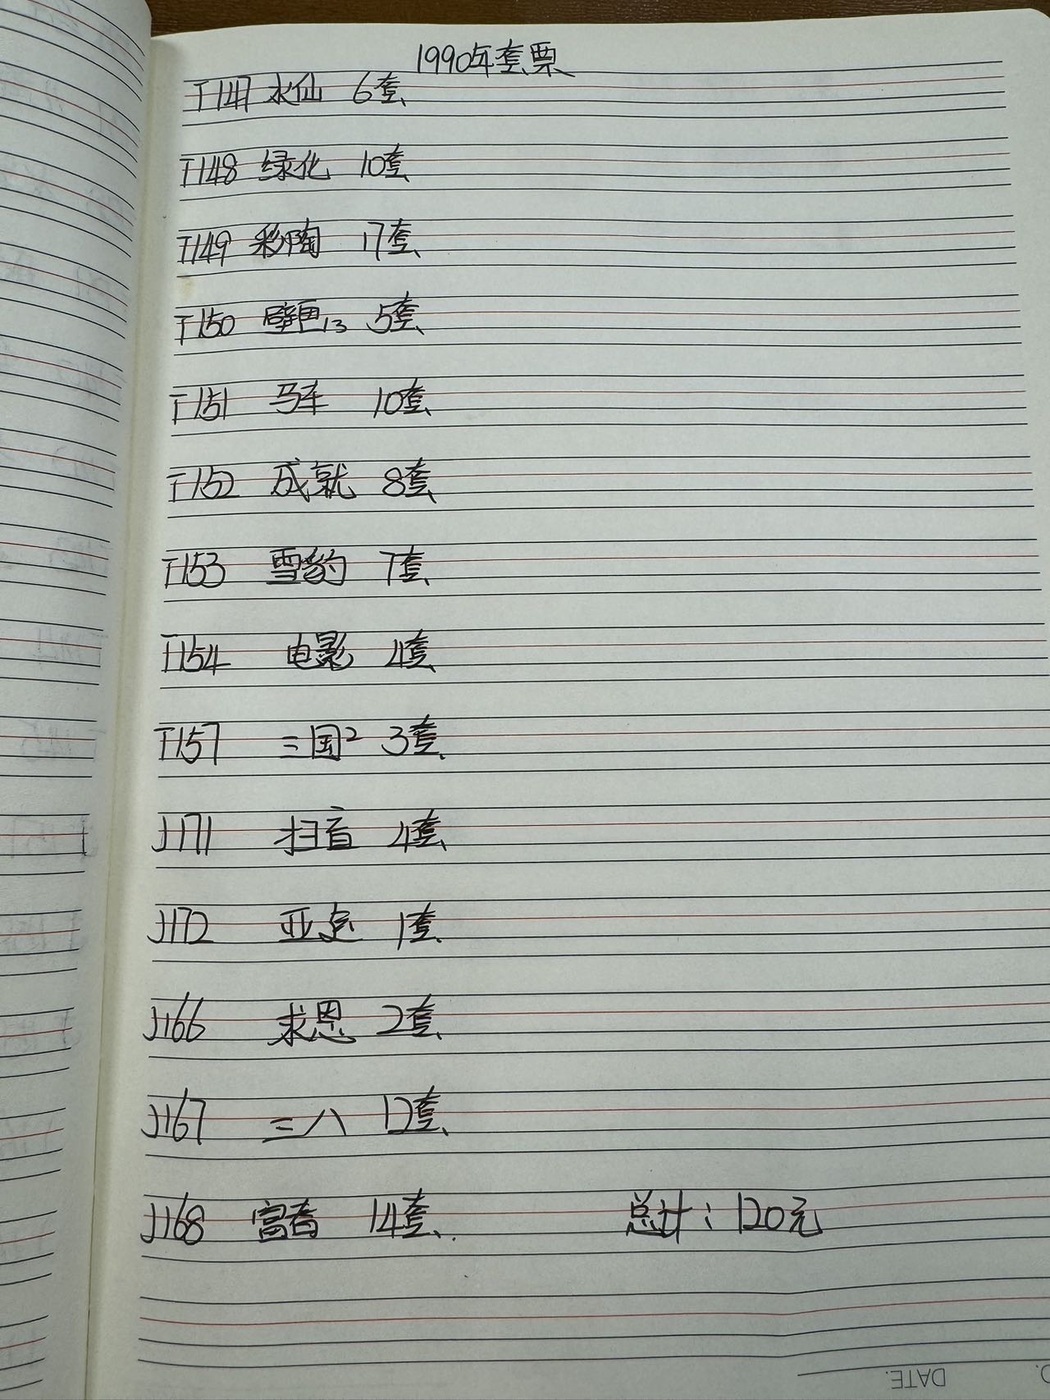 1990年套票
T147 水仙 6套
T148 绿化 10套
T149 彩陶 17套
T150 壁画13 5套
T151 马车 10套
T152 成就 8套
T153 雪豹 7套
T154 电影 4套
T157 三国2 3套
J171 扫盲 4套
J172 亚运 1套
J166 求恩 2套
J167 三八 12套
J168 富春 14套 总计：120元
DATE.